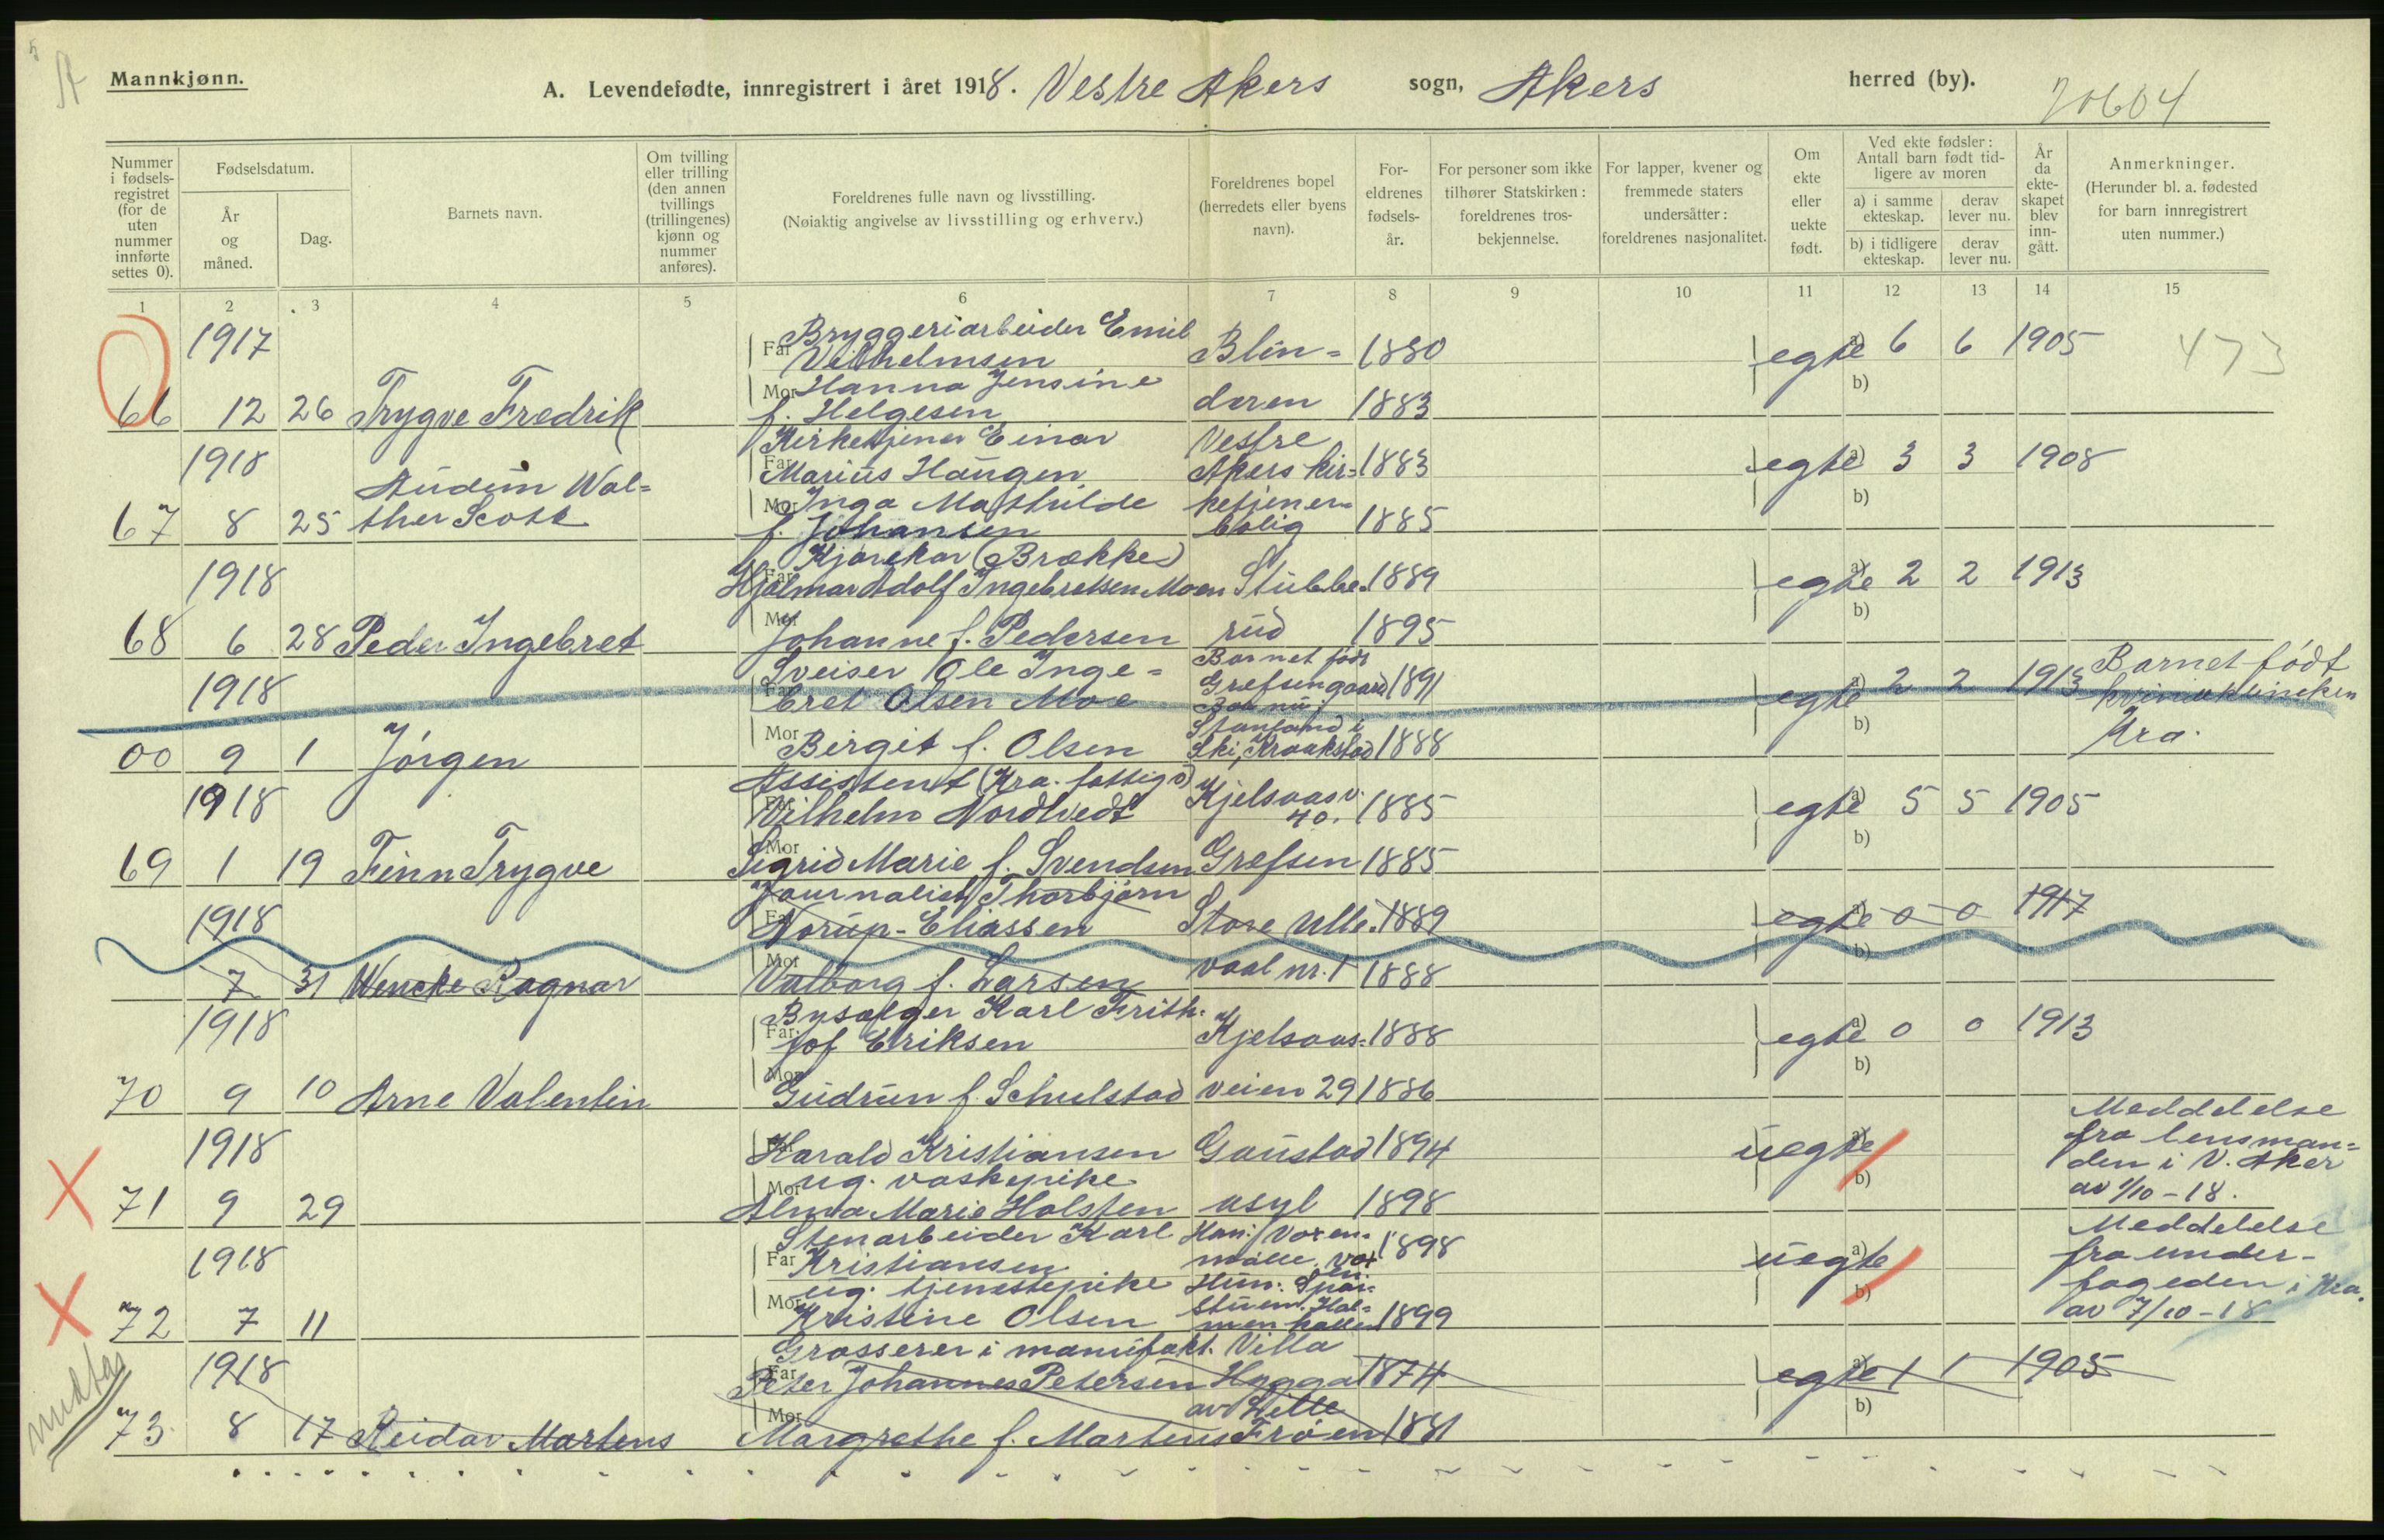 Mannkjønn.
A. Levendefødte, innregistrert i året 1918. Vestre Akers sogn, Akers herred (by).
20604
Nummer i fødsels-registret (for de uten nummer innførte settes 0).
Fødselsdatum.
År og måned.
Dag.
Barnets navn.
Om tvilling eller trilling (den annen tvillings (trillingenes) kjønn og nummer anføres).
Foreldrenes fulle navn og livsstilling.
(Nøiaktig angivelse av livsstilling og erhverv.)
Foreldrenes bopel (herredets eller byens navn).
For-eldrenes fødsels-år.
For personer som ikke tilhører Statskirken: foreldrenes tros-bekjennelse.
For lapper, kvener og fremmede staters undersåtter: foreldrenes nasjonalitet.
Om ekte eller uekte født.
Ved ekte fødsler: Antall barn født tid-ligere av moren
a) i samme ekteskap.
derav lever nu.
b) i tidligere ekteskap.
derav lever nu.
År da ekte-skapet blev inn-gått.
Anmerkninger.
(Herunder bl. a. fødested for barn innregistrert uten nummer.)
1 2 3 4 5 6 7 8 9 10 11 12 13 14 15
1917 Bryggeriarbeider Emil
Far Vilhelmsen Blin= 1880 egte a) 6 6 1905 473
Mor Hanna Jensine b)
66 12 26 Trygve Fredrik f. Helgesen deren 1883
Kirketjener Einar Vestre
1918 Far Marius Haugen Akers kir= 1883 egte a) 3 3 1908
Audun Wal= Mor Inga Mathilde ketjener= b)
67 8 25 ther Scott f. Johansen bolig 1885
Kjørekar (Brække)
1918 Far Hjalmar Adolf Ingebretsen Moen Stubbe= 1889 egte a) 2 2 1913
Mor b)
68 6 28 Peder Ingebret Johanne f. Pedersen rud 1895
Sveiser Ole Inge= Barnet født Barnet født
1918 Far bret Olsen Moe Grefsengaard 1891 egte a) 2 2 1913 kvindeklineken
Bor nu: Stenland i b) Kra.
00 9 1 Jørgen Mor Birgit f. Olsen Ski, Kraakstad 1888
Assistent (Kra. fattigv) Kjelsaasv.
1918 Far Vilhelm Nordtvedt 40. 1885 egte a) 5 5 1905
Mor b)
69 1 19 Finn Trygve Sigrid Marie f. Svendsen Grefsen 1885
Journalist Thorbjørn
1918 Far Norup-Eliassen Store Ulle= 1889 egte a) 0 0 1917
Mor b)
7 31 Wencke Ragnar Valborg f. Larsen vaal nr. 1 1888
Bysælger Karl Frith=
1918 Far jof Eriksen Kjelsaas= 1888 egte a) 0 0 1913
Mor b)
70 9 10 Arne Valentin Gudrun f. Schulstad veien 29 1886
Meddelelse
1918 Far Harald Kristiansen Gaustad 1894 uegte a) fra lensman=
Mor ug. vaskepike b) den i V. Aker
71 9 29 Alma Marie Holsten asyl 1898 av 1/10-18.
Stenarbeider Karl Han: Voxen= Meddelelse
1918 Far Kristiansen 1898 uegte a) fra under=
Mor ug. tjenestepike Hun: b) fogeden i Kra.
72 7 11 Kristine Olsen 1899 av 7/10-18
Grosserer i manufakt. Villa
1918 Far Peter Johannes Petersen Hygga 1874 egte a) 1 1 1905
Mor av Lille b)
73 8 17 Reidar Martens Margrethe f. Martens Frøen 1881